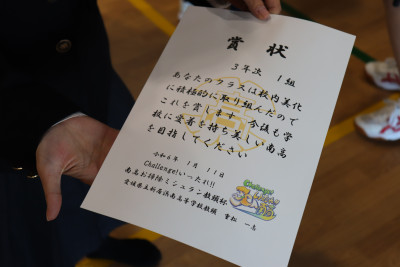 賞状
3年次 1組
あなたのクラスは校内美化
に積極的に取り組んだので
これを賞します 今後も学
校に愛着を持ち美しい南高
を目指してください
令和6年 1月 11日
Challenge!いーたれ!!
南高お掃除ミシュラン教頭杯
愛媛県立新居浜南高等学校教頭 重松 一志
Challenge!